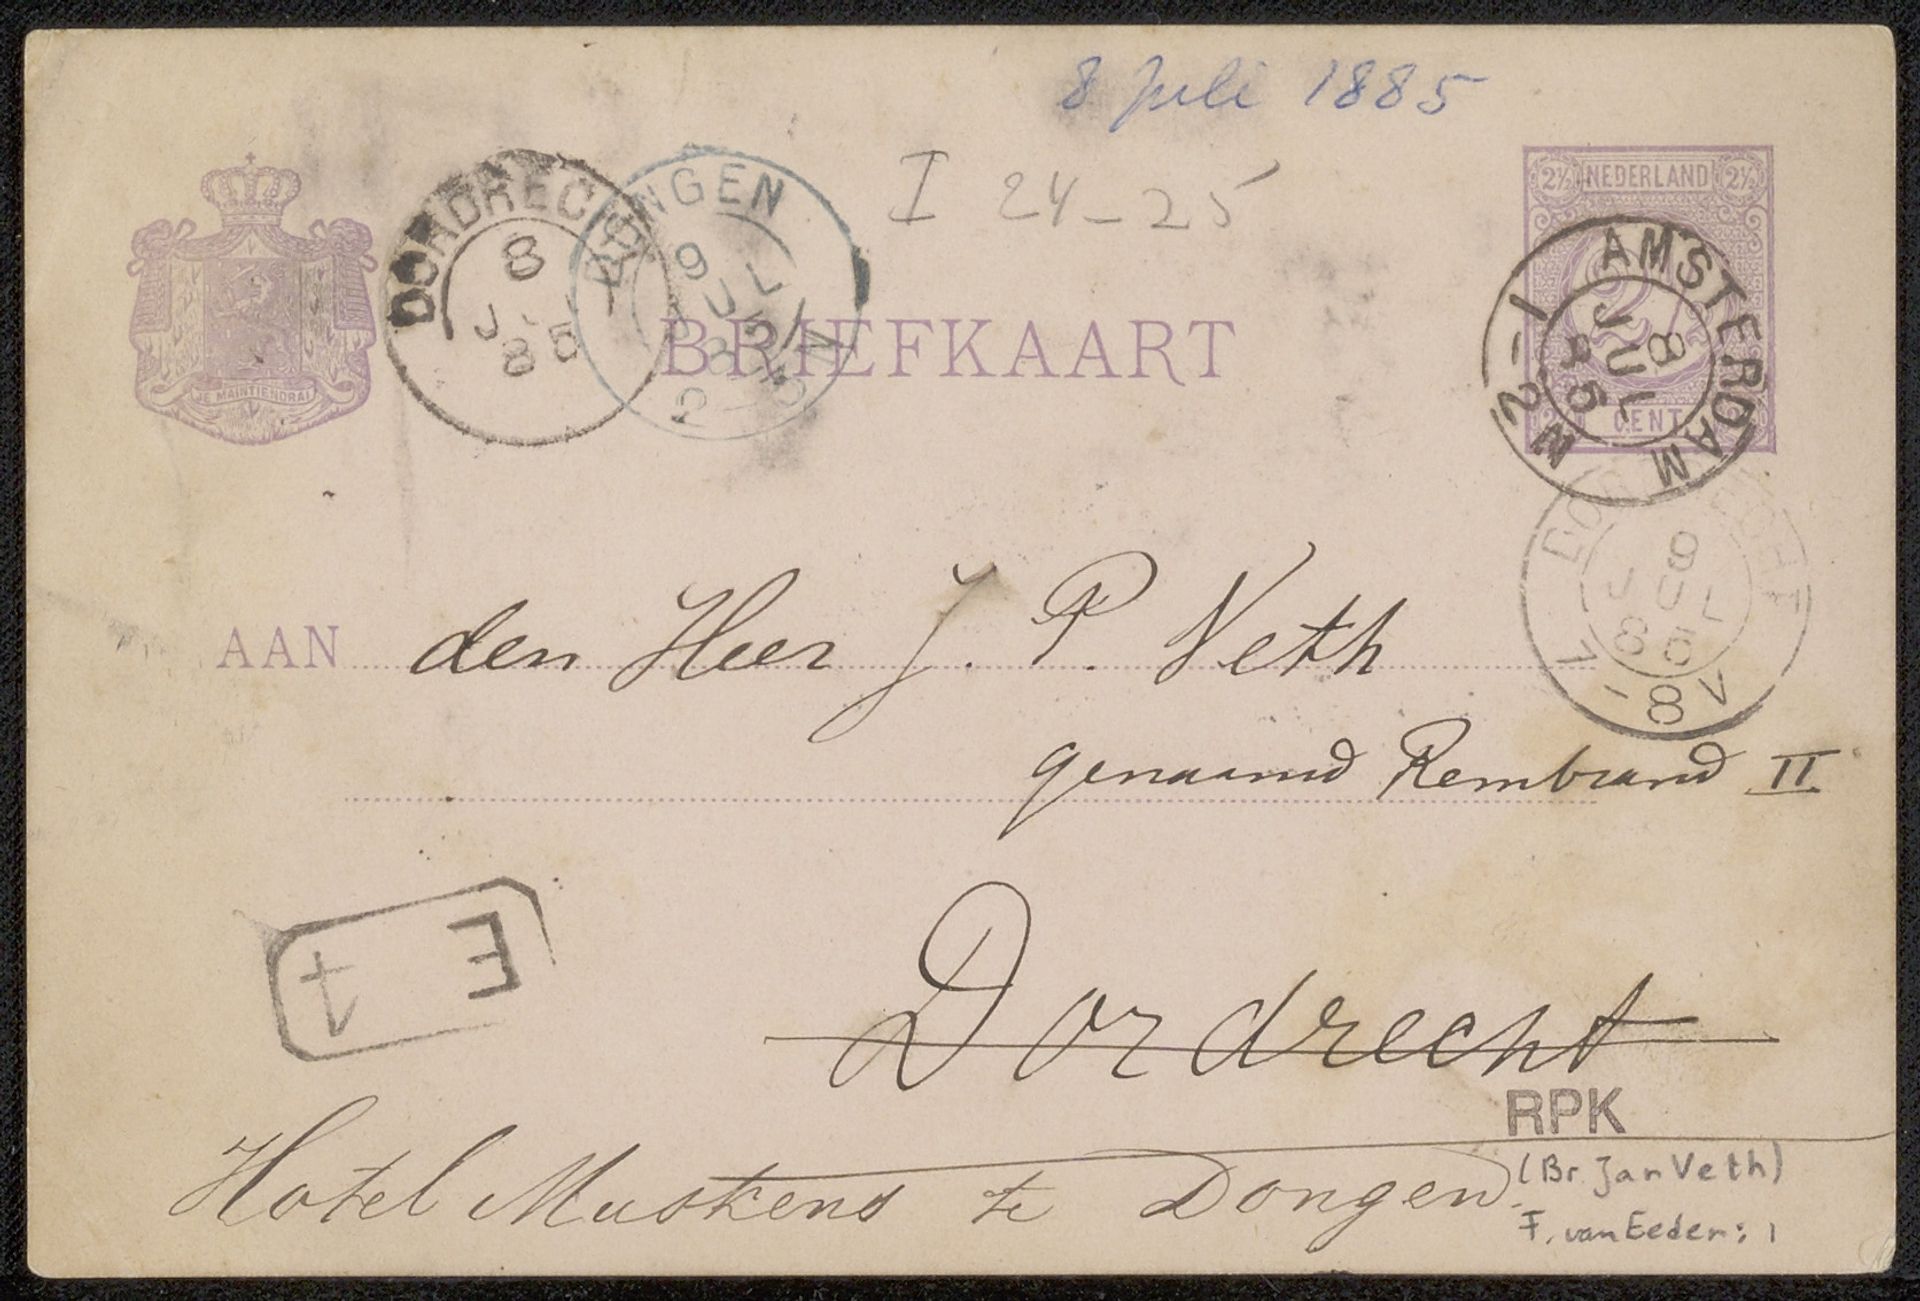 8 Juli 1885
I 24-25
NEDERLAND
2½ 2½
CENT
JE MAINTIENDRAI
DORDRECHT
8 JUL 85
DONGEN
9 JUL 85
AMSTERDAM
8 JUL 85
1-2 N
BRIEFKAART
DORDRECHT
9 JUL 85
7V-8V
AAN den Heer J. P. Veth
genaamd Rembrand II
E 1
Dordrecht
RPK
Hotel Muskens te Dongen.
(Br. Jan Veth)
F. van Eeden: 1